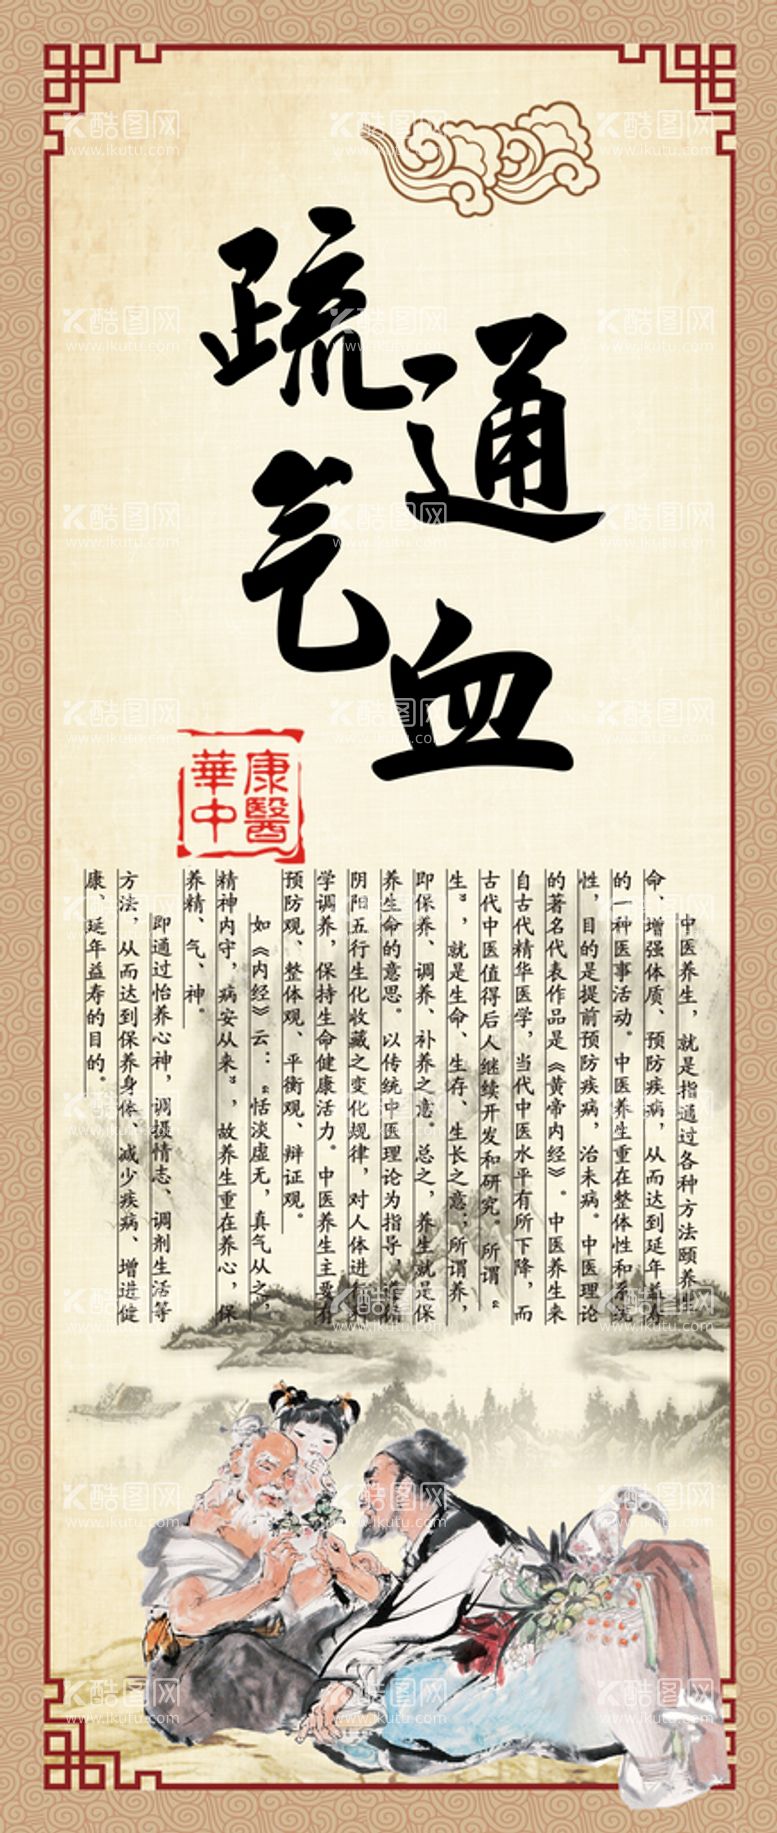 疏通
气血
康醫
華中
中医养生，就是指通过各种方法颐养生
命、增强体质、预防疾病，从而达到延年益寿
的一种医事活动。中医养生重在整体性和系统
性，目的是提前预防疾病，治未病。中医理论
的著名代表作品是《黄帝内经》。中医养生来
自古代精华医学，当代中医水平有所下降，而
古代中医值得后人继续开发和研究。所谓“
生”，就是生命、生存、生长之意；所谓养，
即保养、调养、补养之意。总之，养生就是保
养生命的意思。以传统中医理论为指导，遵循
阴阳五行生化收藏之变化规律，对人体进行科
学调养，保持生命健康活力。中医养生主要有
预防观、整体观、平衡观、辩证观。
如《内经》云：“恬淡虚无，真气从之，
精神内守，病安从来”，故养生重在养心，保
养精、气、神。
即通过怡养心神，调摄情志、调剂生活等
方法，从而达到保养身体、减少疾病、增进健
康、延年益寿的目的。
酷图网
www.ikutu.com